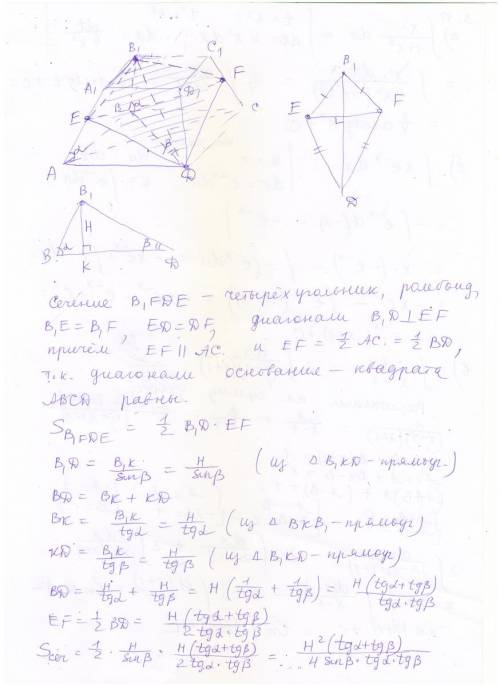 B₁
C₁
A₁
D₁
F
E
B
C
A
α
β
D
B₁
E
F
D
B₁
H
B
α
β
K
D
Сечение B₁FDE – четырёхугольник, ромбоид,
B₁E = B₁F, ED = DF, диагонали B₁D ⊥ EF
причём EF ∥ AC. и EF = 1/2 AC. = 1/2 BD,
т.к. диагонали основание – квадрата
ABCD равны.
S_B₁FDE = 1/2 B₁D · EF
B₁D = B₁K/sinβ = H/sinβ (из Δ B₁KD – прямоуг.)
BD = BK + KD
BK = B₁K/tgα = H/tgα (из Δ BKB₁ – прямоуг)
KD = B₁K/tgβ = H/tgβ (из Δ B₁KD – прямоуг)
BD = H/tgα + H/tgβ = H (1/tgα + 1/tgβ) = H(tgα+tgβ)/tgα·tgβ
EF = 1/2 BD = H(tgα+tgβ)/2tgα·tgβ
Sсеч = 1/2 · H/sinβ · H(tgα+tgβ)/2tgα·tgβ = H²(tgα+tgβ)/4 sinβ·tgα·tgβ